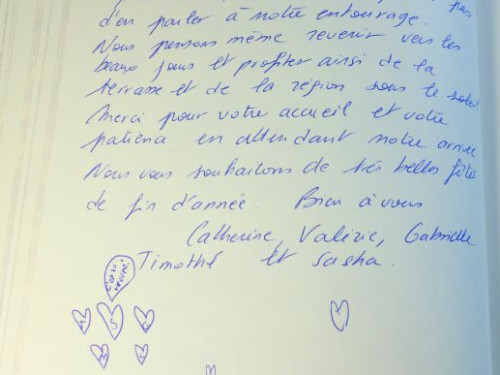 pas
d'en parler à notre entourage.
Nous pensons même revenir vers les
beaux jours et profiter ainsi de la
terrasse et de la région sous le soleil
Merci pour votre accueil et votre
patience en attendant notre arrivée
Nous vous souhaitons de très belles fêtes
de fin d'année. Bien à vous
Catherine, Valérie, Gabrielle
Timothé et Sasha.
S